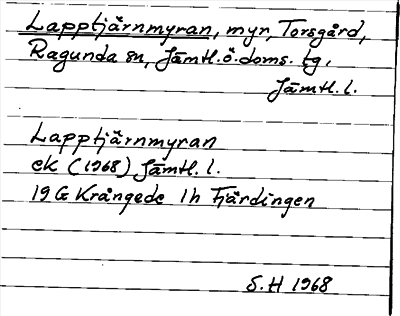 Lapptjärnmyran, myr, Torsgård,
Ragunda sn, Jämtl.ö.doms. tg.
Jämtl. l.
Lapptjärnmyran
ek (1968) Jämtl. l.
19 G Krångede 1h Fjärdingen
S. H 1968